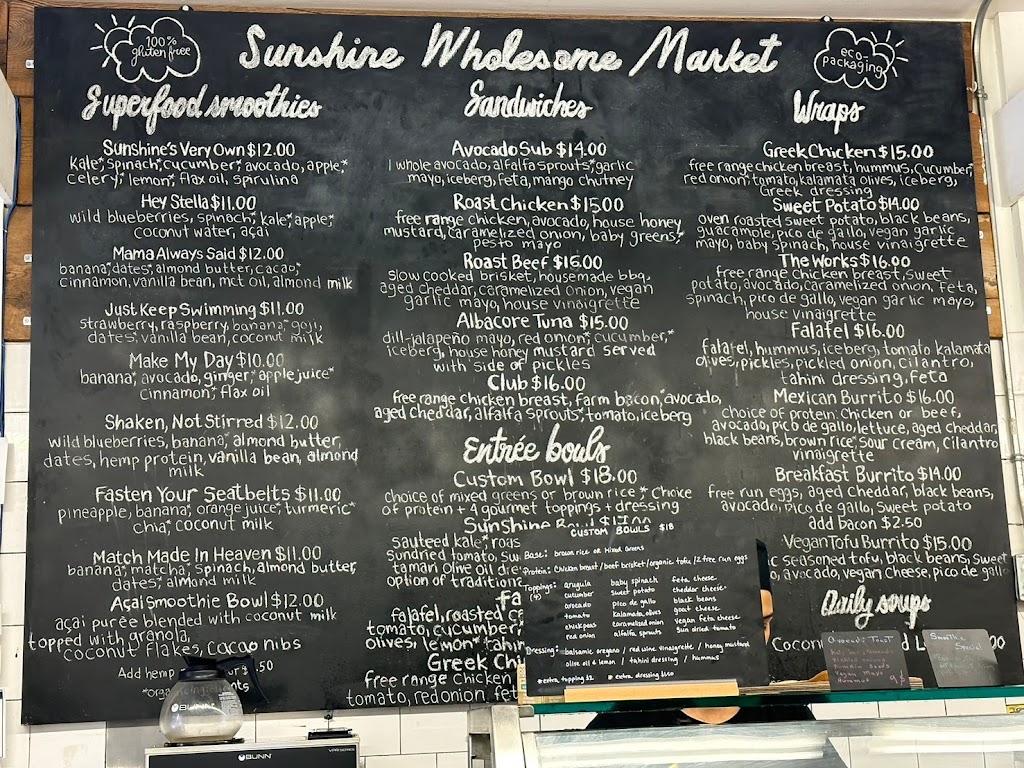 100%
gluten free
Sunshine Wholesome Market
eco-
packaging
Superfood smoothies
Sunshine's Very Own $12.00
kale,* spinach,* cucumber,* avocado, apple,*
celery,* lemon,* flax oil, spirulina
Hey Stella $11.00
wild blueberries, spinach,* kale,* apple,*
coconut water, açai
Mama Always Said $12.00
banana,* dates,* almond butter, cacao,*
cinnamon, vanilla bean, mct oil, almond milk
Just Keep Swimming $11.00
strawberry, raspberry, banana,* goji,
dates,* vanilla bean, coconut milk
Make My Day $10.00
banana,* avocado, ginger,* apple juice*
cinnamon,* flax oil
Shaken, Not Stirred $12.00
wild blueberries, banana,* almond butter,
dates, hemp protein, vanilla bean, almond
milk
Fasten Your Seatbelts $11.00
pineapple, banana,* orange juice,* turmeric*
chia,* coconut milk
Match Made In Heaven $11.00
banana,* matcha,* spinach, almond butter,
dates,* almond milk
Açai Smoothie Bowl $12.00
açai purée blended with coconut milk
topped with granola,
coconut flakes, cacao nibs
Add hemp
.50
Sandwiches
Avocado Sub $14.00
1 whole avocado, alfalfa sprouts,* garlic
mayo, iceberg, feta, mango chutney
Roast Chicken $15.00
free range chicken, avocado, house honey
mustard, caramelized onion, baby greens,*
pesto mayo
Roast Beef $16.00
slow cooked brisket, housemade bbq,
aged cheddar, caramelized onion, vegan
garlic mayo, house vinaigrette
Albacore Tuna $15.00
dill-jalapeño mayo, red onion,* cucumber,*
iceberg, house honey mustard served
with side of pickles
Club $16.00
free range chicken breast, farm bacon, avocado,
aged cheddar, alfalfa sprouts,* tomato, iceberg
Entrée bowls
Custom Bowl $18.00
choice of mixed greens or brown rice * Choice
of protein + 4 gourmet toppings + dressing
Sunshine
sauteed kale,*
sundried tomato,
tamari olive oil
option of
falafel, roasted
tomato, cucumber,
olives, lemon*
Greek
free range chicken
tomato, red onion,
Custom Bowls $18
Base: brown rice or mixed greens
Protein: Chicken breast / beef brisket / organic tofu / 2 free run eggs
Toppings: arugula baby spinach feta cheese
(4) cucumber sweet potato cheddar cheese
avocado pico de gallo black beans
tomato kalamata olives goat cheese
chickpeas caramelized onion vegan feta cheese
red onion alfalfa sprouts sun dried tomato
Dressing: balsamic oregano / red wine vinaigrette / honey mustard
olive oil & lemon / tahini dressing / hummus
* extra topping $2 * extra dressing $1.50
Wraps
Greek Chicken $15.00
free range chicken breast, hummus, cucumber,*
red onion,* tomato, kalamata olives, iceberg,
Greek dressing
Sweet Potato $14.00
oven roasted sweet potato, black beans,
guacamole, pico de gallo, vegan garlic
mayo, baby spinach, house vinaigrette
The Works $16.00
free range chicken breast, sweet
potato, avocado, caramelized onion, feta,
spinach, pico de gallo, vegan garlic mayo,
house vinaigrette
Falafel $16.00
falafel, hummus, iceberg, tomato kalamata
olives, pickles, pickled onion, cilantro,
tahini dressing, feta
Mexican Burrito $16.00
choice of protein: Chicken or beef,
avocado, pico de gallo, lettuce, aged cheddar,
black beans, brown rice, sour cream, cilantro
vinaigrette
Breakfast Burrito $14.00
free run eggs, aged cheddar, black beans,
avocado, pico de gallo, sweet potato
add bacon $2.50
Vegan Tofu Burrito $15.00
seasoned tofu, black beans, sweet
avocado, vegan cheese, pico de gallo
Daily soups
Avocado Toast
Pumpkin Seeds
Vegan Mayo
9$
Smoothie
Special
BUNN
BUNN
VPR SERIES